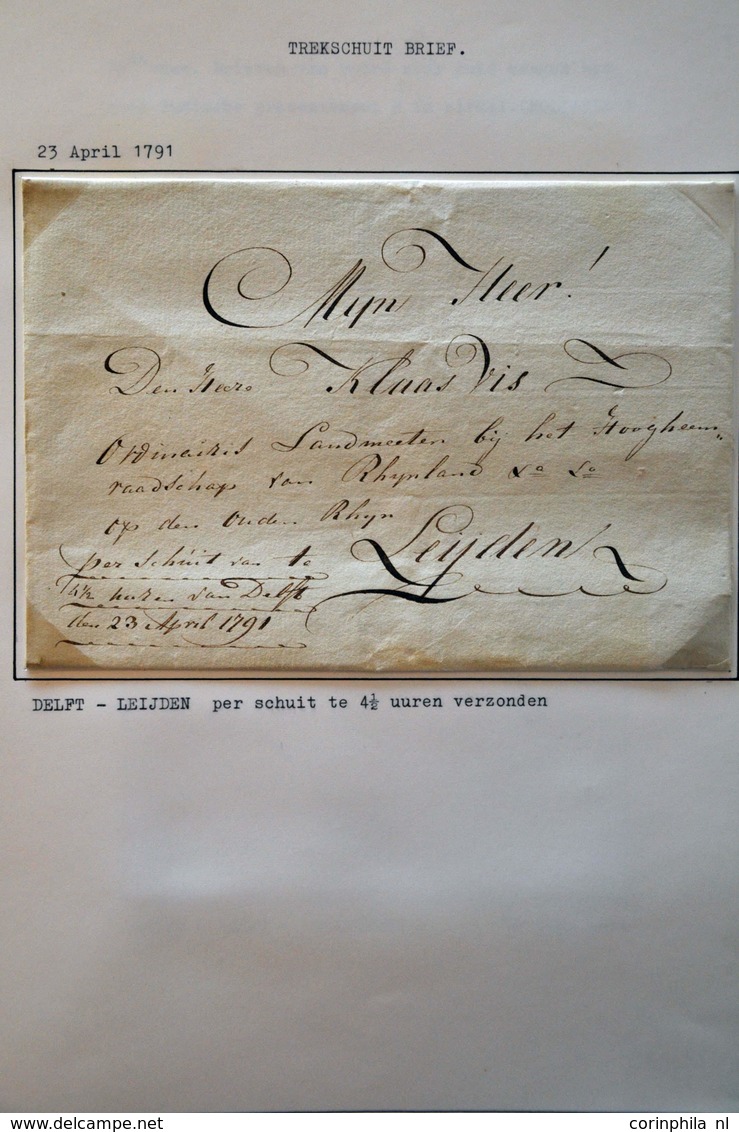 TREKSCHUIT BRIEF.
23 April 1791
Mijn Heer!
Den Heere Klaas Vis
Ordinaires Landmeeter bij het Hoogheem„
raadschap van Rhynland &a &a
op den Ouden Rhyn
Leijden
per schuit van te
4½ uuren van Delft
den 23 April 1791
DELFT - LEIJDEN per schuit te 4½ uuren verzonden
www.delcampe.net
corinphila nl